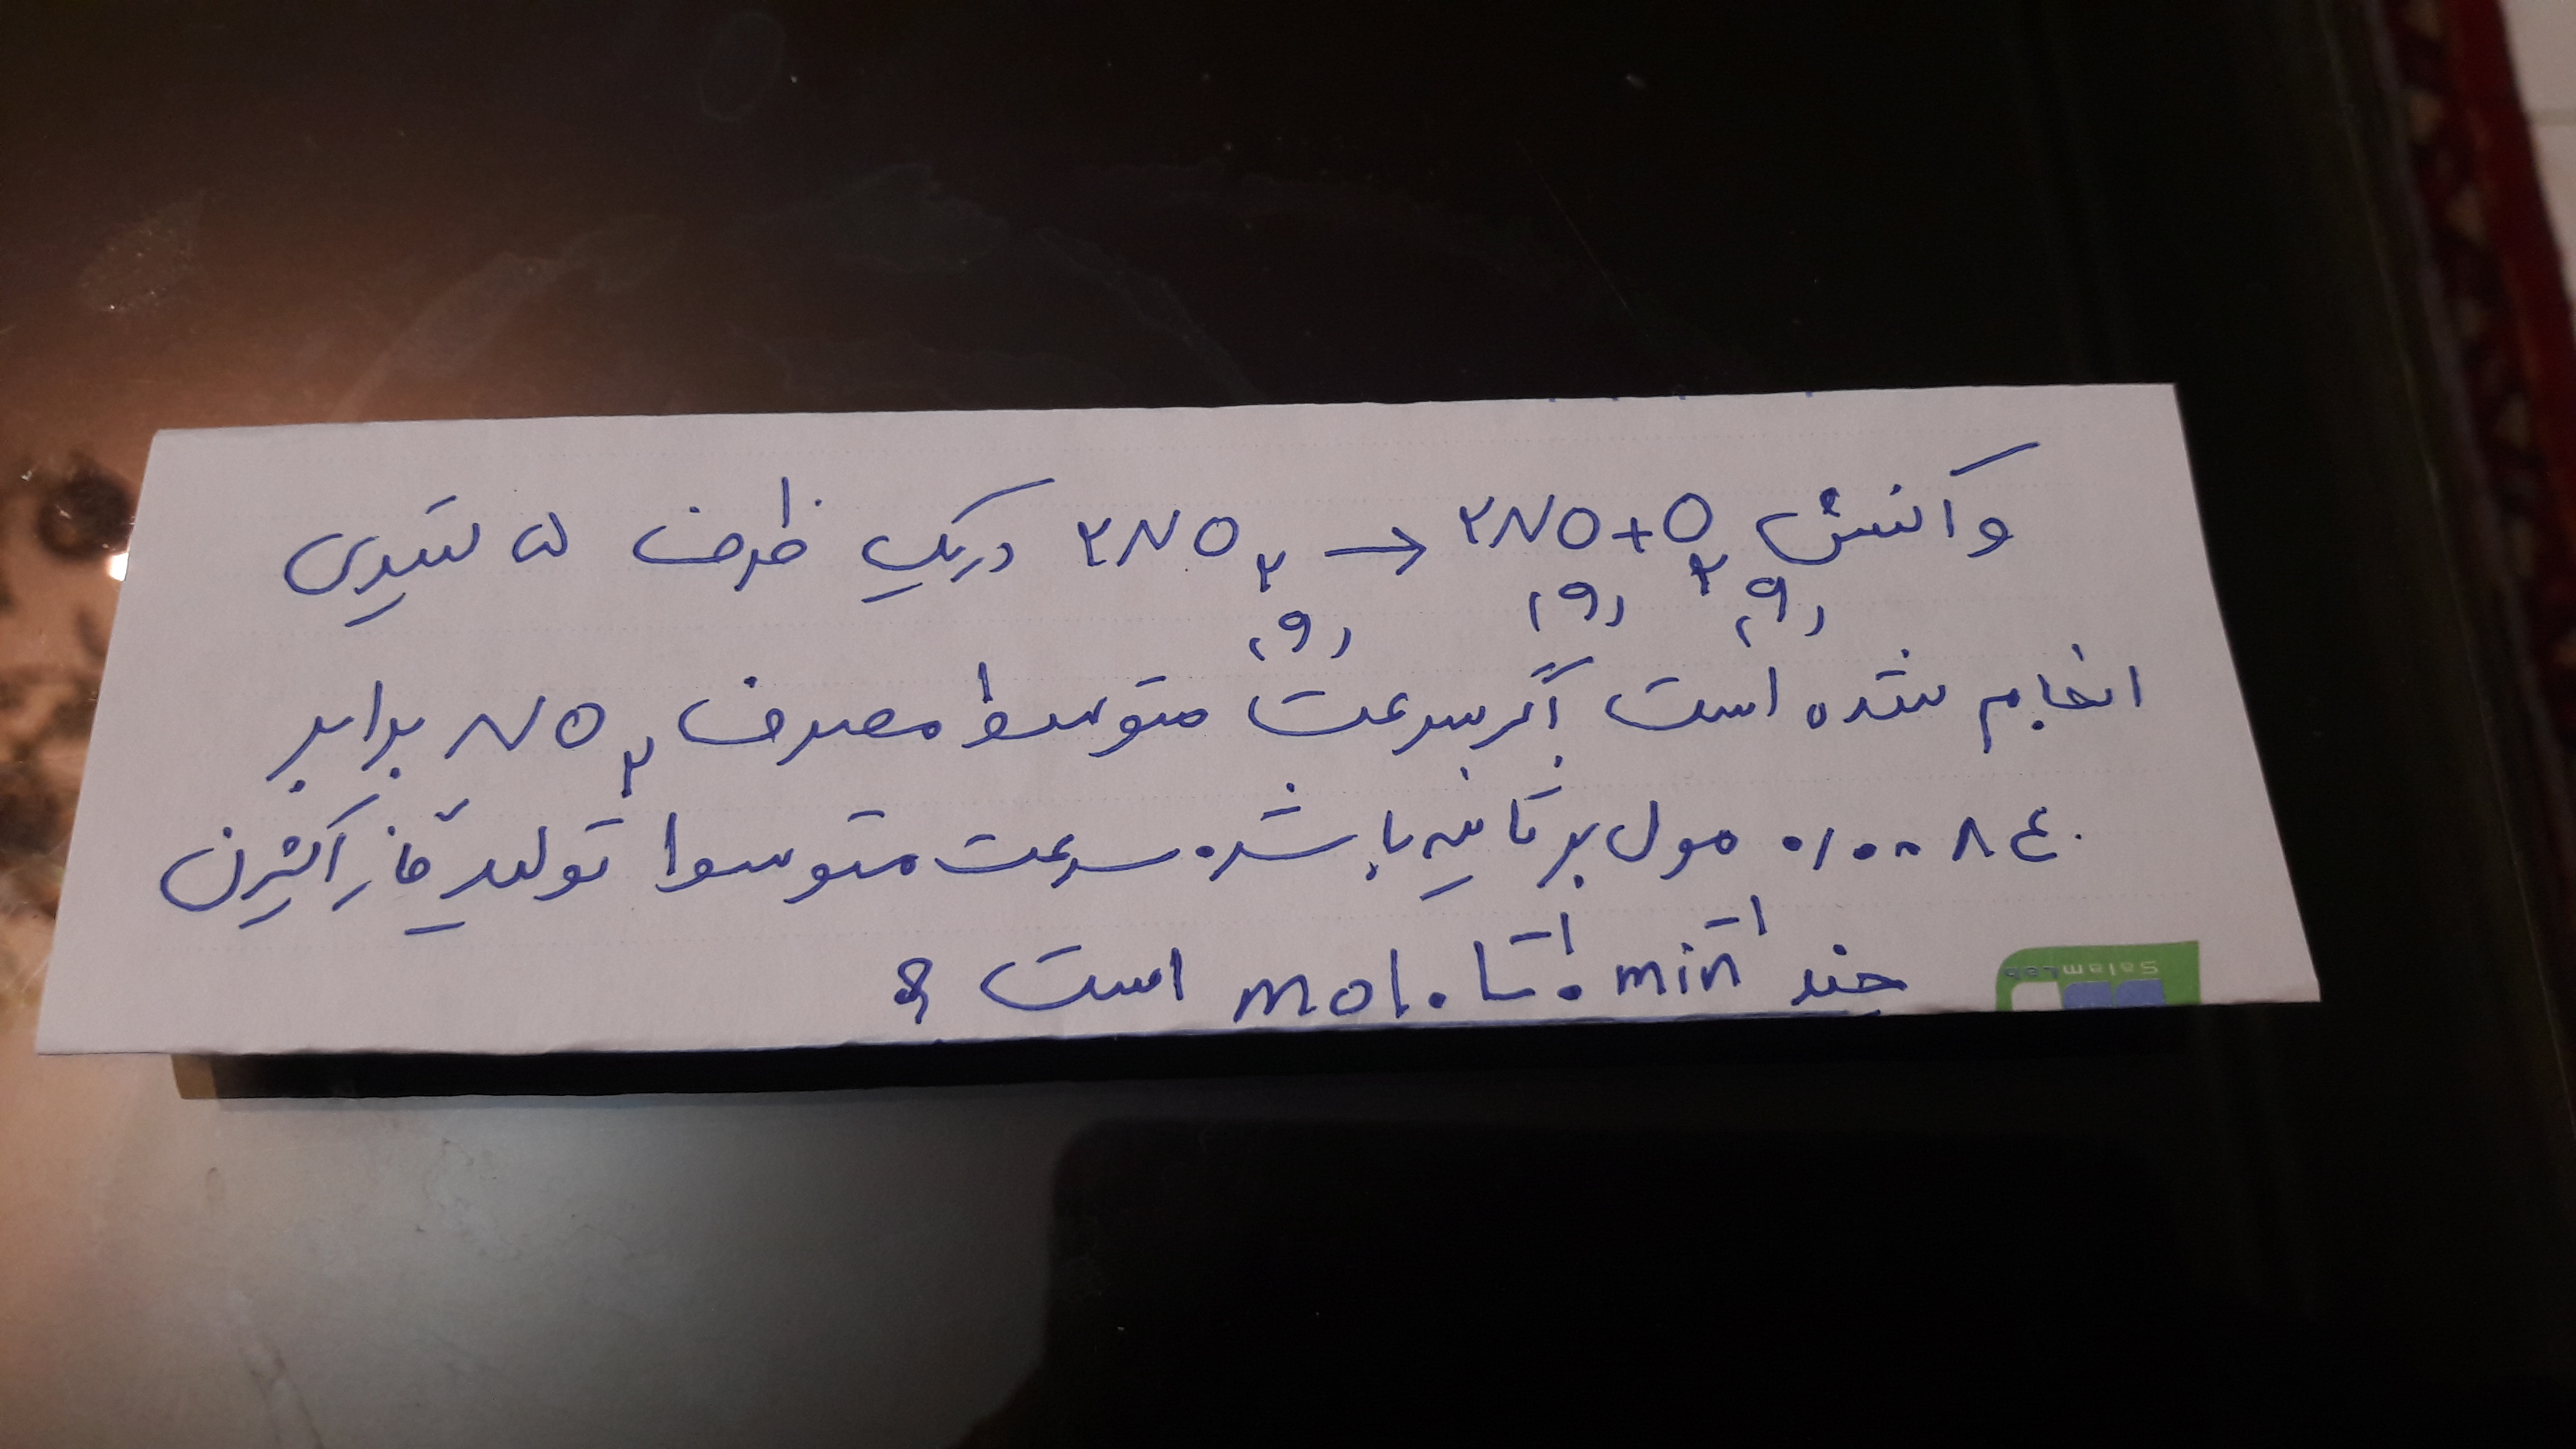 واکنش ۲NO₂ → ۲NO+O₂ در یک ظرف ۵ لیتری
(g) (g) (g)
انجام شده است اگر سرعت متوسط مصرف NO₂ برابر
۰/۰۰۸۴ مول بر ثانیه باشد. سرعت متوسط تولید گاز اکسیژن
چند mol.L⁻¹.min⁻¹ است ؟
Salam